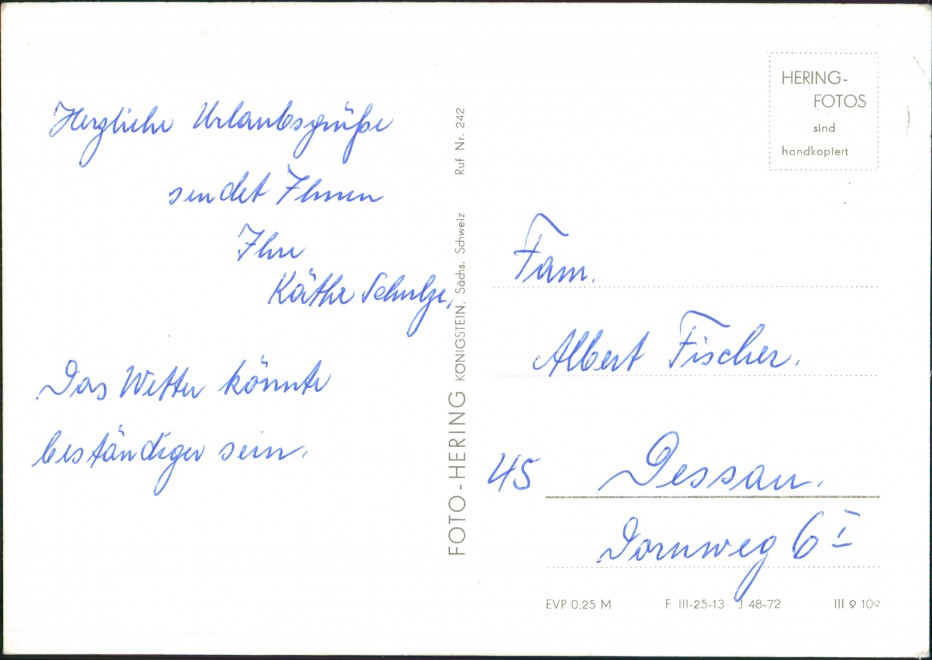 Herzliche Urlaubsgrüße
sendet Ihnen
Ihre
Käthe Schulze,
Das Wetter könnte
beständiger sein.
FOTO-HERING KÖNIGSTEIN, Sächs. Schweiz Ruf Nr. 242
HERING-
FOTOS
sind
handkopiert
Fam.
Albert Fischer.
45 Dessau.
Dornweg 6 I
EVP 0,25 M F III-25-13 J 48-72 III 9 109